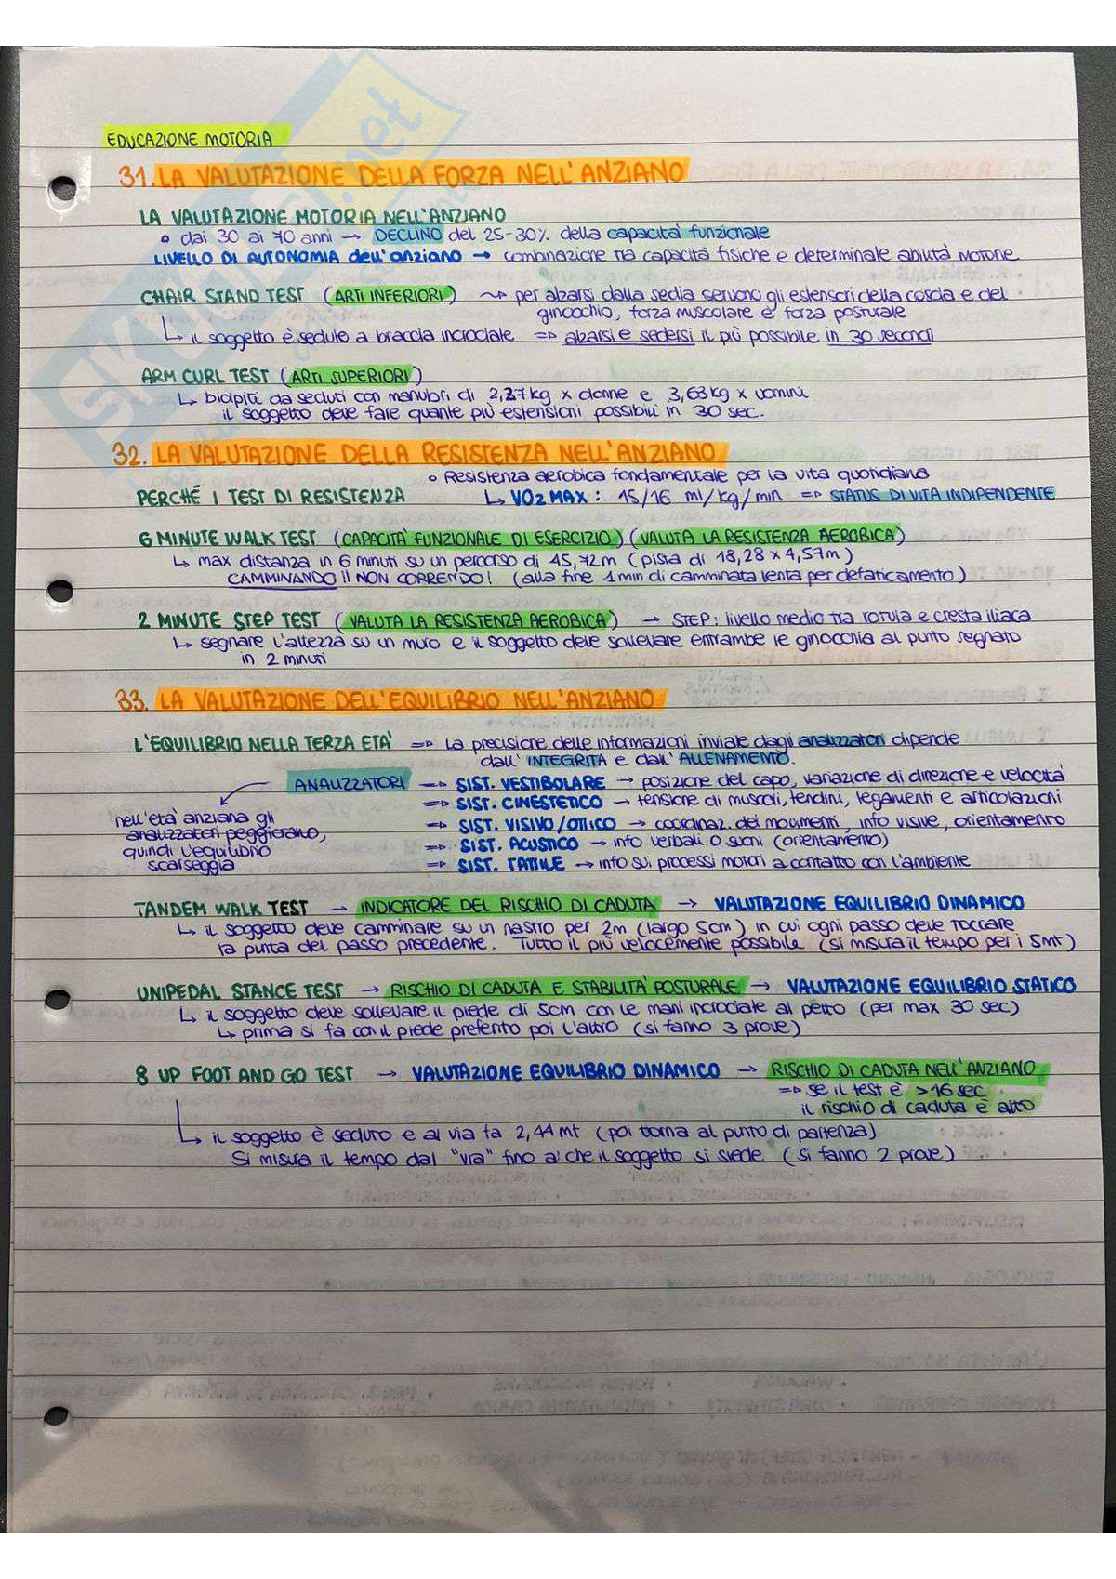 EDUCAZIONE MOTORIA
31. LA VALUTAZIONE DELLA FORZA NELL'ANZIANO
LA VALUTAZIONE MOTORIA NELL'ANZIANO
• dai 30 ai 70 anni → DECLINO del 25-30% della capacità funzionale
LIVELLO DI AUTONOMIA dell'anziano → combinazione tra capacità fisiche e determinate abilità motorie
CHAIR STAND TEST (ARTI INFERIORI) → per alzarsi dalla sedia servono gli estensori della coscia e del
ginocchio, forza muscolare e forza posturale
↳ il soggetto è seduto a braccia incrociate => alzarsi e sedersi il più possibile in 30 secondi
ARM CURL TEST (ARTI SUPERIORI)
↳ bicipiti da seduti con manubri di 2,27 kg x donne e 3,63 kg x uomini
il soggetto deve fare quante più estensioni possibili in 30 sec.
32. LA VALUTAZIONE DELLA RESISTENZA NELL'ANZIANO
• Resistenza aerobica fondamentale per la vita quotidiana
PERCHÉ I TEST DI RESISTENZA ↳ VO2 MAX: 15/16 ml/kg/min => STATUS DI VITA INDIPENDENTE
6 MINUTE WALK TEST (CAPACITÀ FUNZIONALE DI ESERCIZIO) (VALUTA LA RESISTENZA AEROBICA)
↳ max distanza in 6 minuti su un percorso di 45,72m (pista di 18,28 x 4,57m)
CAMMINANDO!! NON CORRENDO! (alla fine 1 min di camminata lenta per defaticamento)
2 MINUTE STEP TEST (VALUTA LA RESISTENZA AEROBICA) → STEP: livello medio tra rotula e cresta iliaca
↳ segnare l'altezza su un muro e il soggetto deve sollevare entrambe le ginocchia al punto segnato
in 2 minuti
33. LA VALUTAZIONE DELL'EQUILIBRIO NELL'ANZIANO
L'EQUILIBRIO NELLA TERZA ETÀ => la precisione delle informazioni inviate dagli analizzatori dipende
dall'INTEGRITÀ e dall'ALLENAMENTO.
ANALIZZATORI => SIST. VESTIBOLARE → posizione del capo, variazione di direzione e velocità
=> SIST. CINESTETICO → tensione di muscoli, tendini, legamenti e articolazioni
nell'età anziana gli
analizzatori peggiorano,
quindi l'equilibrio
scarseggia
=> SIST. VISIVO/OTTICO → coordinaz. dei movimenti, info visive, orientamento
=> SIST. ACUSTICO → info verbali o suoni (orientamento)
=> SIST. TATTILE → info sui processi motori a contatto con l'ambiente
TANDEM WALK TEST → INDICATORE DEL RISCHIO DI CADUTA → VALUTAZIONE EQUILIBRIO DINAMICO
↳ il soggetto deve camminare su un nastro per 2m (largo 5cm) in cui ogni passo deve toccare
la punta del passo precedente. Tutto il più velocemente possibile (si misura il tempo per i 5mt)
UNIPEDAL STANCE TEST → RISCHIO DI CADUTA E STABILITÀ POSTURALE → VALUTAZIONE EQUILIBRIO STATICO
↳ il soggetto deve sollevare il piede di 5cm con le mani incrociate al petto (per max 30 sec)
↳ prima si fa con il piede preferito poi l'altro (si fanno 3 prove)
8 UP FOOT AND GO TEST → VALUTAZIONE EQUILIBRIO DINAMICO → RISCHIO DI CADUTA NELL'ANZIANO
=> se il test è >16 sec
il rischio di caduta è alto
↳ il soggetto è seduto e al via fa 2,44 mt (poi torna al punto di partenza)
Si misura il tempo dal "via" fino a che il soggetto si siede. (si fanno 2 prove)